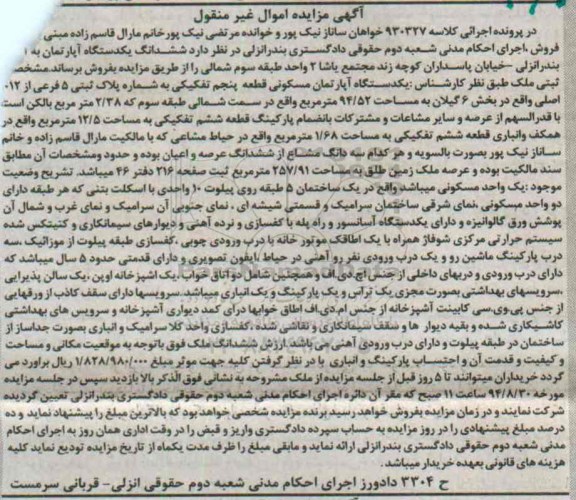 آگهی مزایده اموال غیر منقول
در پرونده اجرائی کلاسه ۹۳۰۳۲۷ خواهان ساناز نیک پور و خوانده مرتضی نیک پور خانم مارال قاسم زاده مبنی
فروش ،اجرای احکام مدنی شعبه دوم حقوقی دادگستری بندرانزلی در نظر دارد ششدانگ یکدستگاه آپارتمان به
بندرانزلی –خیابان پاسداران کوچه زند مجتمع یاشا ۲ واحد طبقه سوم شمالی را از طریق مزایده بفروش برساند.مشخصات
ثبتی ملک طبق نظر کارشناس :یکدستگاه آپارتمان مسکونی قطعه پنجم تفکیکی به شماره پلاک ثبتی ۵ فرعی از ۱۲
اصلی واقع در بخش ۶ گیلان به مساحت ۹۴/۵۲ مترمربع واقع در سمت شمالی طبقه سوم که ۲/۳۸ متر مربع بالکن است
با قدرالسهم از عرصه و سایر مشاعات و مشترکات بانضمام پارکینگ قطعه ششم تفکیکی به مساحت ۱۲/۵ مترمربع واقع در
همکف وانباری قطعه ششم تفکیکی به مساحت ۱/۶۸ مترمربع واقع در حیاط مشاعی که با مالکیت مارال قاسم زاده و خانم
ساناز نیک پور بصورت بالسویه و هر کدام سه دانگ مشاع از ششدانگ عرصه و اعیان بوده و حدود ومشخصات آن مطابق
سند مالکیت بوده و عرصه ملک زمین طلق به مساحت ۲۵۷/۹۱ مترمربع ثبت صفحه ۲۱۶ دفتر ۴۶ میباشد. تشریح وضعیت
موجود :یک واحد مسکونی میباشد واقع در یک ساختمان ۵ طبقه روی پیلوت ۱۰ واحدی با اسکلت بتنی که هر طبقه دارای
دو واحد مسکونی ،نمای شرقی ساختمان سرامیک و قسمتی شیشه ای ، نمای جنوبی آن سرامیک و نمای غرب و شمال آن
پوشش ورق گالوانیزه و دارای یکدستگاه آسانسور و راه پله با کفسازی و نرده آهنی و دیوارهای سیمانکاری و کنیتکس شده
سیستم حرارتی مرکزی شوفاژ همراه با یک اطاقک موتور خانه با درب ورودی چوبی ،کفسازی طبقه پیلوت از موزائیک ،سه
درب پارکینگ ماشین رو و یک درب ورودی نفر رو آهنی در حیاط ،ایفون تصویری و دارای قدمتی حدود ۵ سال میباشد که
دارای درب ورودی و دربهای داخلی از جنس اچ.دی.اف و همچنین شامل دو اتاق خواب ،یک اشپزخانه اوپن ،یک سالن پذیرایی
،سرویسهای بهداشتی بصورت مجزی یک تراس و یک پارکینگ و یک انباری میباشد.سرویسها دارای سقف کاذب از ورقهایی
از جنس پی.وی.سی کابینت آشپزخانه از جنس ام.دی.اف اطاق خوابها درای کمد دیواری آشپزخانه و سرویس های بهداشتی
کاشیکاری شده و بقیه دیوار ها و سقف سیمانکاری و نقاشی شده ،کفسازی واحد کلا سرامیک و انباری بصورت جداساز از
ساختمان در طبقه پیلوت و دارای درب ورودی آهنی می باشد.ارزش ششدانگ ملک فوق باتوجه به موقعیت مکانی و مساحت
و کیفیت و قدمت آن و احتساب پارکینگ و انباری با در نظر گرفتن کلیه جهت موثر مبلغ ۱/۸۲۸/۹۸۰/۰۰۰ ریال براورد می
گردد خریداران میتوانند تا ۵ روز قبل از جلسه مزایده از ملک مشروحه به نشانی فوق الذکر بالا بازدید سپس در جلسه مزایده
مورخه ۹۴/۸/۳۰ ساعت ۱۱ صبح که مقر آن دائره اجرای احکام مدنی شعبه دوم حقوقی دادگستری بندرانزلی تعیین گردیده
شرکت نمایند و در زمان مزایده بفروش خواهد رسید برنده مزایده شخصی خواهد بود که بالاترین مبلغ را پیشنهاد نماید و ده
درصد مبلغ پیشنهادی را در روز مزایده به حساب سپرده دادگستری واریز و قبض را در وقت اداری همان روز به اجرای احکام
مدنی شعبه دوم حقوقی دادگستری بندرانزلی ارائه نماید و مابقی مبلغ را ظرف مدت یکماه از تاریخ مزایده تودیع نماید کلیه
هزینه های قانونی بعهده خریدار میباشد.
ح ۳۳۰۴ دادورز اجرای احکام مدنی شعبه دوم حقوقی انزلی- قربانی سرمست